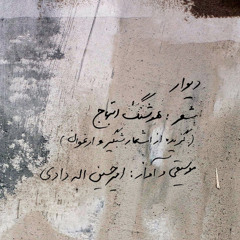 دیوار
شعر : هوشنگ ابتهاج
(گزیده از اشعار شبگیر و ارغوان)
موسیقی و آواز : امیرحسین اله دادی